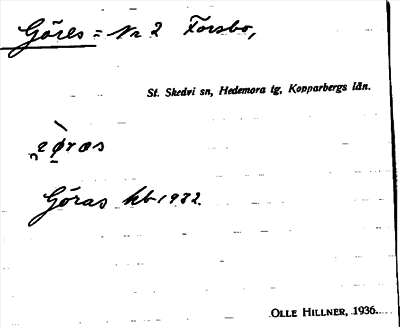 Göres = Nr 2 Forsbo,
St. Skedvi sn, Hedemora tg, Kopparbergs län.
Göras hb 1932.
OLLE HILLNER, 1936.